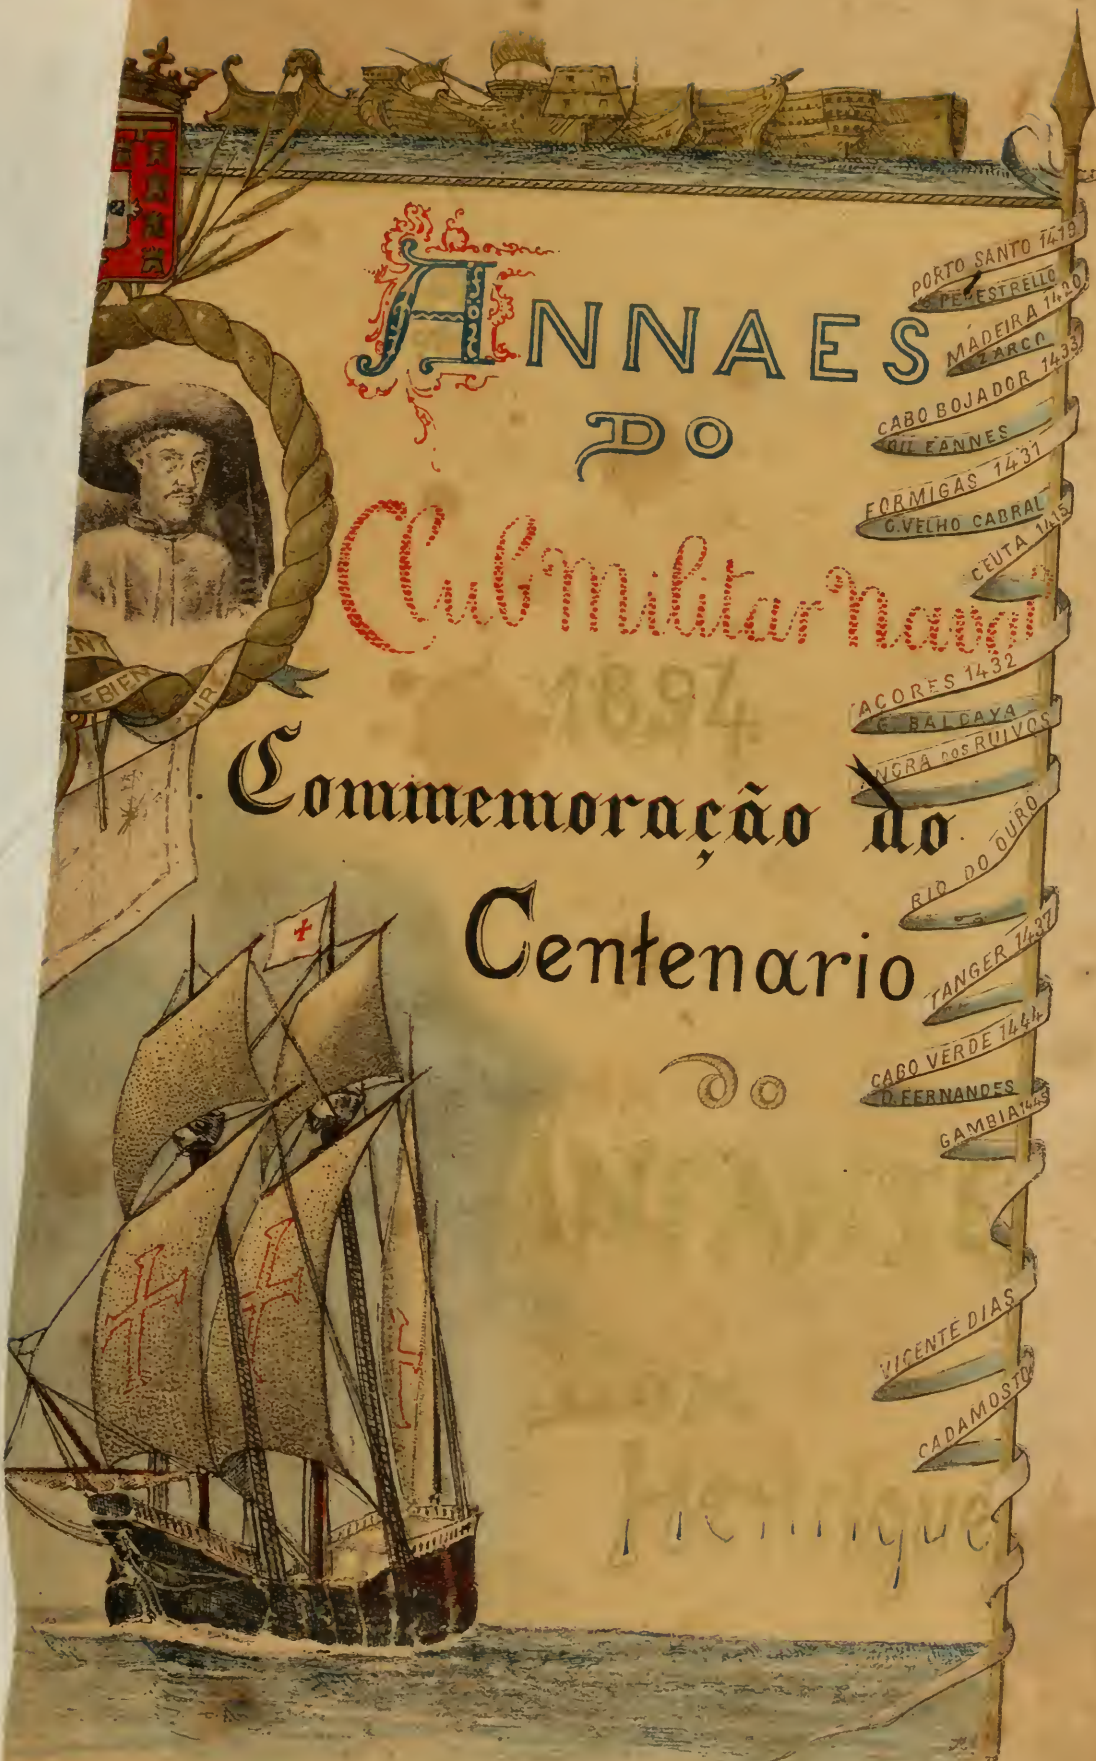 ANNAES
DO
Club Militar Naval
1894
Commemoração do
Centenario
do
Henrique
PORTO SANTO 1419
PERESTRELLO
MADEIRA 1420
ZARCO
CABO BOJADOR 1433
GIL EANNES
FORMIGAS 1431
G. VELHO CABRAL
CEUTA 1415
AÇORES 1432
G. BALDAYA
DOS RUIVOS
RIO DO OURO
TANGER 1437
CABO VERDE 1444
D. FERNANDES
GAMBIA 1445
VICENTE DIAS
CADAMOSTO